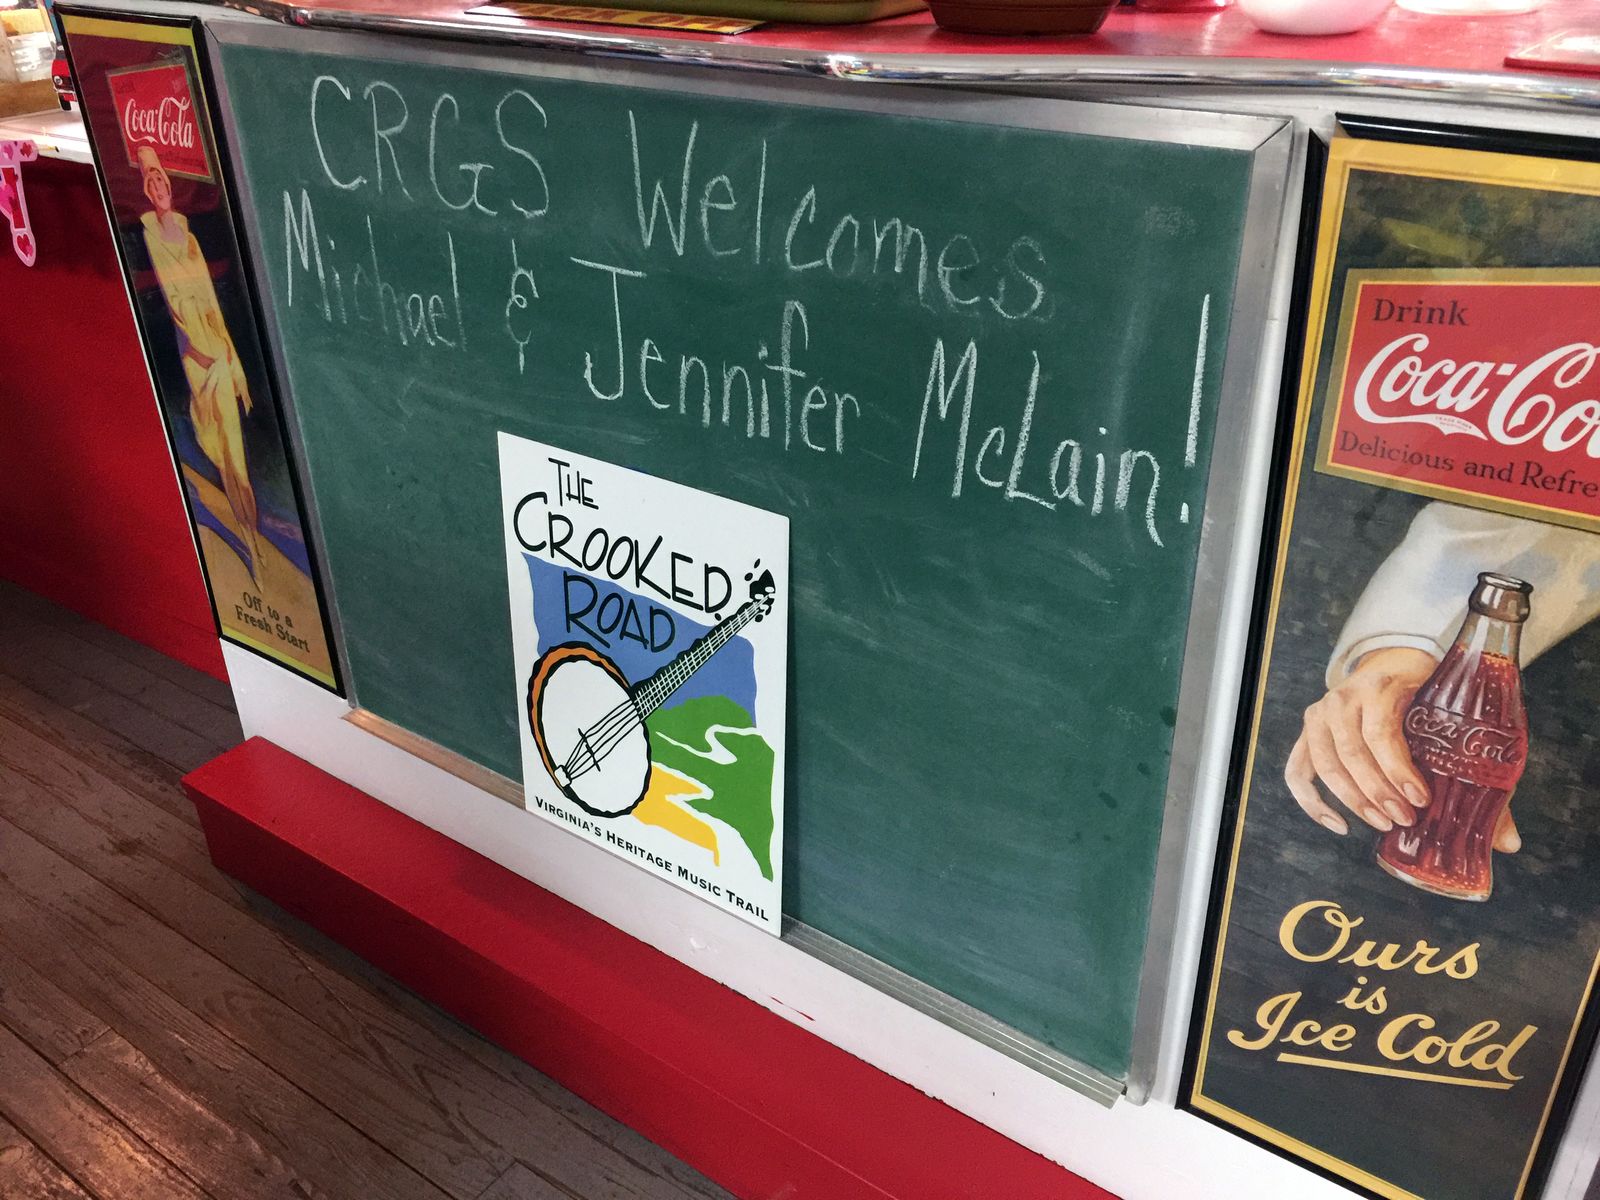 CRGS Welcomes
Michael & Jennifer McLain!
THE
CROOKED
ROAD
VIRGINIA'S HERITAGE MUSIC TRAIL
Drink
Coca-Cola
Off to a
Fresh Start
Drink
Coca-Co
Delicious and Refre
Coca-Cola
Ours
is
Ice Cold